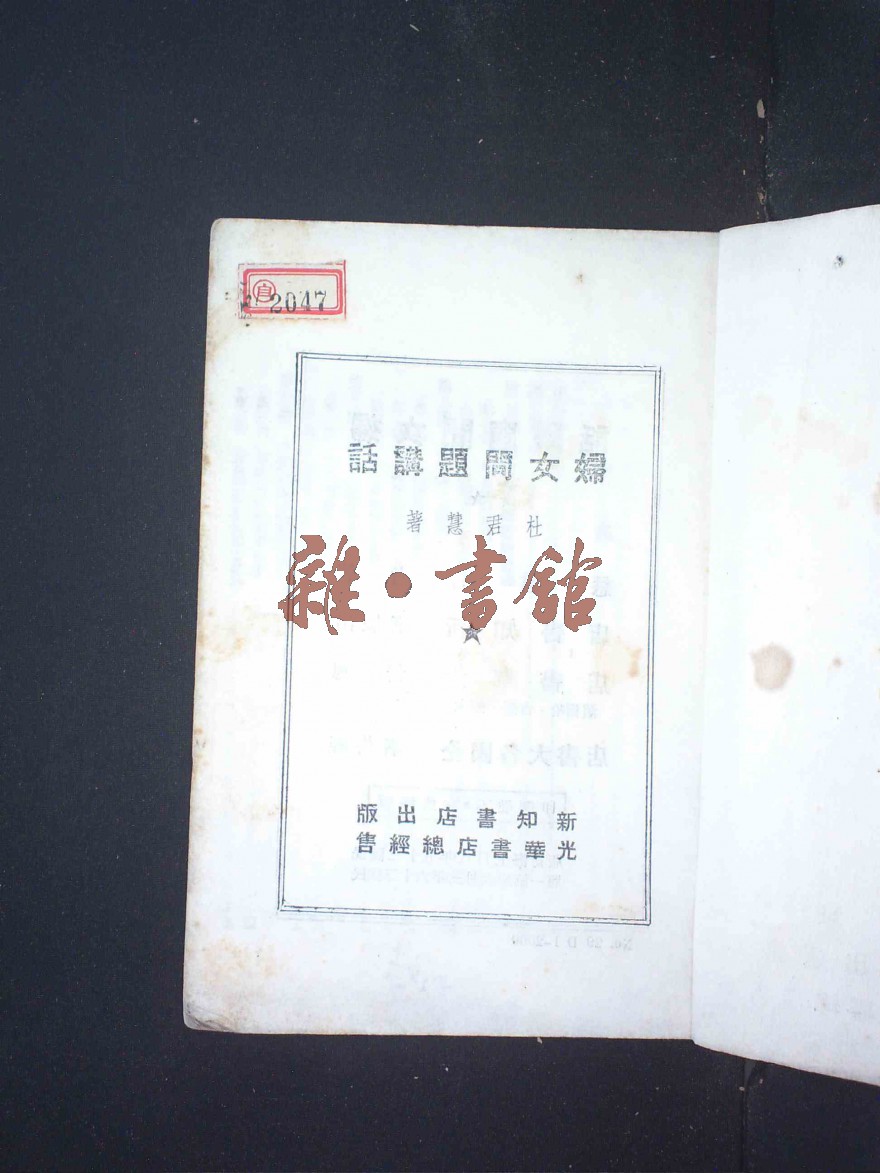 自
2047
婦女問題講話
杜君慧著
雜·書館
新知書店出版
光華書店總經售